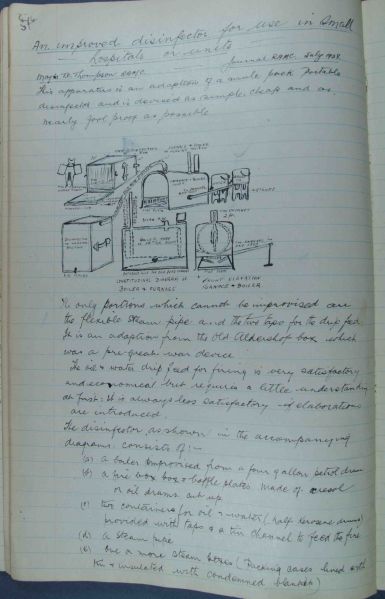 An improved disinfector for use in Small
Hospitals or units
Journal RAMC. July 1938
Major Thompson RAMC.
This apparatus is an adaption of a mule pack Portable
disinfector and is devised as simple cheap and as
nearly fool proof as possible
LONGITUDINAL DIAGRAM OF
BOILER & FURNACE
FRONT ELEVATION
FURNACE & BOILER
The only portions which cannot be improvised are
the flexible steam pipe and the two taps for the drip feed
It is an adaption from the Old Aldershot box which
was a pre-great war device
The oil & water drip feed for firing is very satisfactory
and economical but requires a little understanding
at first: It is always less satisfactory if elaborations
are introduced.
The disinfector as shown in the accompanying
diagrams consists of :-
(a) a boiler improvised from a four gallon petrol drum
(b) a fire box & baffle plates made of cresol
or oil drums cut up
(c) two containers for oil & water (half kerosene drums)
provided with taps & a tin channel to feed the fire
(d) a steam pipe
(e) one or more steam boxes (Packing cases lined with
tin & insulated with condemned blankets)